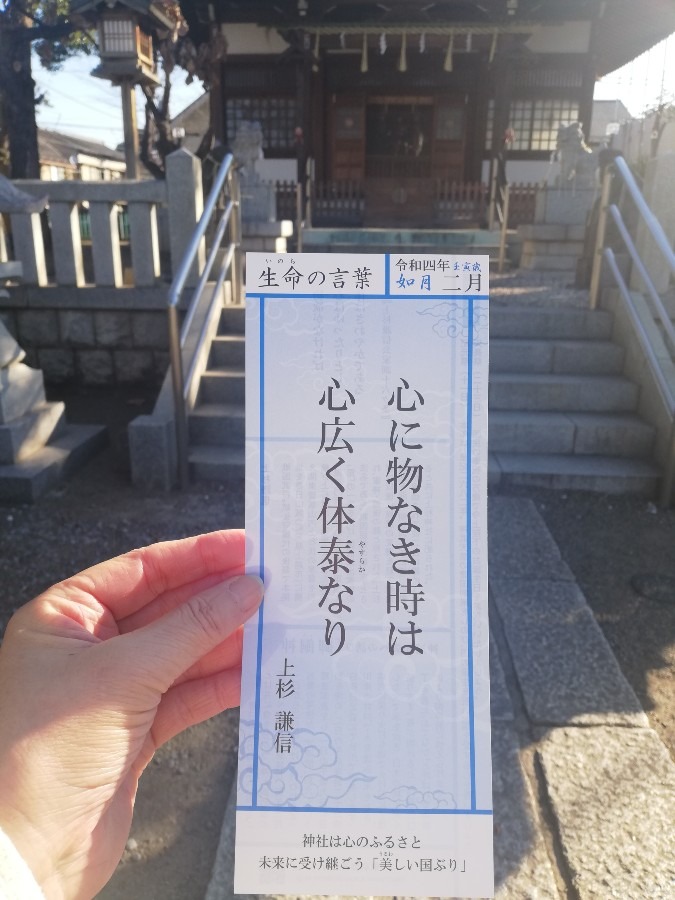 生命の言葉
いのち
令和四年 壬寅歳
如月 二月
心に物なき時は
心広く体泰なり
やすらか
上杉 謙信
神社は心のふるさと
未来に受け継ごう「美しい国ぶり」